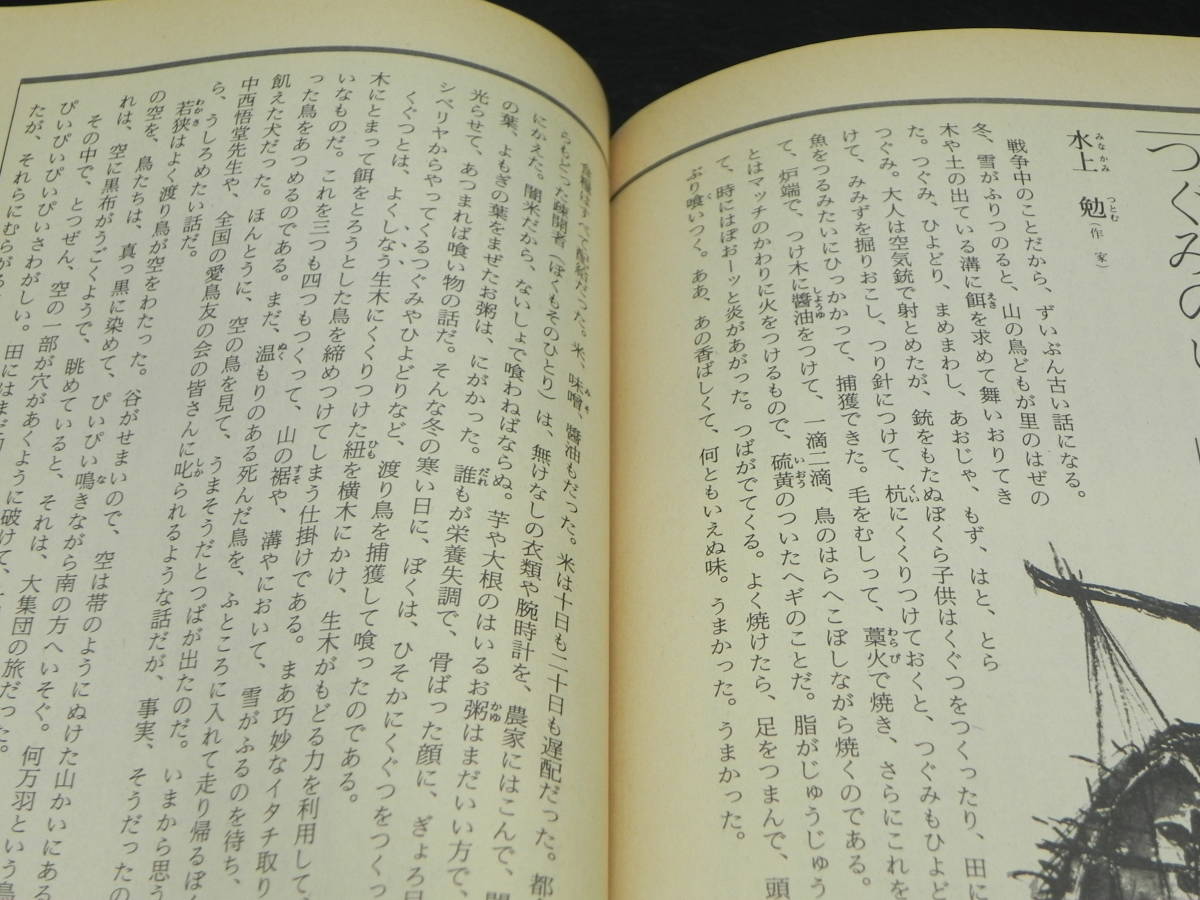 つぐみの
水上 勉（作家）
みなかみ つとむ
戦争中のことだから、ずいぶん古い話になる。
冬、雪がふりつのると、山の鳥どもが里のはぜの
木や土の出ている溝に餌を求めて舞いおりてき
た。つぐみ、ひよどり、まめまわし、あおじゃ、もず、はと、とら
つぐみ。大人は空気銃で射とめたが、銃をもたぬぼくら子供はくぐつをつくったり、田に
けて、みみずを掘りおこし、つり針につけて、杭にくくりつけておくと、つぐみもひよど
魚をつるみたいにひっかかって、捕獲できた。毛をむしって、藁火で焼き、さらにこれを
て、炉端で、つけ木に醬油をつけて、一滴二滴、鳥のはらへこぼしながら焼くのである。
とはマッチのかわりに火をつけるもので、硫黄のついたヘギのことだ。脂がじゅうじゅう
て、時にはぼおーッと炎があがった。つばがでてくる。よく焼けたら、足をつまんで、頭
ぶり喰いつく。ああ、あの香ばしくて、何ともいえぬ味。うまかった。うまかった。
食糧はすべて配給だった。米、味噌、醬油もだった。米は十日も二十日も遅配だった。都
らもどった疎開者（ぼくもそのひとり）は、無けなしの衣類や腕時計を、農家にはこんで、闇
にかえた。闇米だから、ないしょで喰わねばならぬ。芋や大根のはいるお粥はまだいい方で、
の葉、よもぎの葉をまぜたお粥は、にがかった。誰もが栄養失調で、骨ばった顔に、ぎょろ目
光らせて、あつまれば喰い物の話だ。そんな冬の寒い日に、ぼくは、ひそかにくぐつをつくっ
シベリヤからやってくるつぐみやひよどりなど、渡り鳥を捕獲して喰ったのである。
くぐつとは、よくしなう生木にくくりつけた紐を横木にかけ、生木がもどる力を利用して、
木にとまって餌をとろうとした鳥を締めつけてしまう仕掛けである。まあ巧妙なイタチ取り
いなものだ。これを三つも四つもつくって、山の裾や、溝やにおいて、雪がふるのを待ち、
った鳥をあつめるのである。まだ、温もりのある死んだ鳥を、ふところに入れて走り帰るぼく
飢えた犬だった。ほんとうに、空の鳥を見て、うまそうだとつばが出たのだ。いまから思う
中西悟堂先生や、全国の愛鳥友の会の皆さんに叱られるような話だが、事実、そうだったの
ら、うしろめたい話だ。
若狭はよく渡り鳥が空をわたった。谷がせまいので、空は帯のようにぬけた山かいにある
の空を、鳥たちは、真っ黒に染めて、ぴいぴい鳴きながら南の方へいそぐ。何万羽という鳥
れは、空に黒布がうごくようで、眺めていると、それは、大集団の旅だった。
その中で、とつぜん、空の一部が穴があくように破けて、
ぴいぴいぴいぴいさわがしい。田にはまだ
たが、それらにむらがる